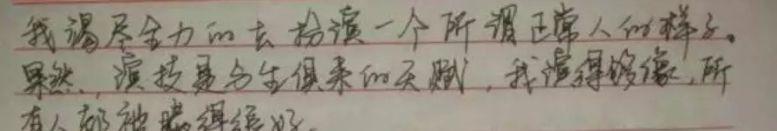 我竭尽全力的去扮演一个所谓正常人的样子。
果然，演技是与生俱来的天赋，我演得够像，所
有人都被瞒得很好。